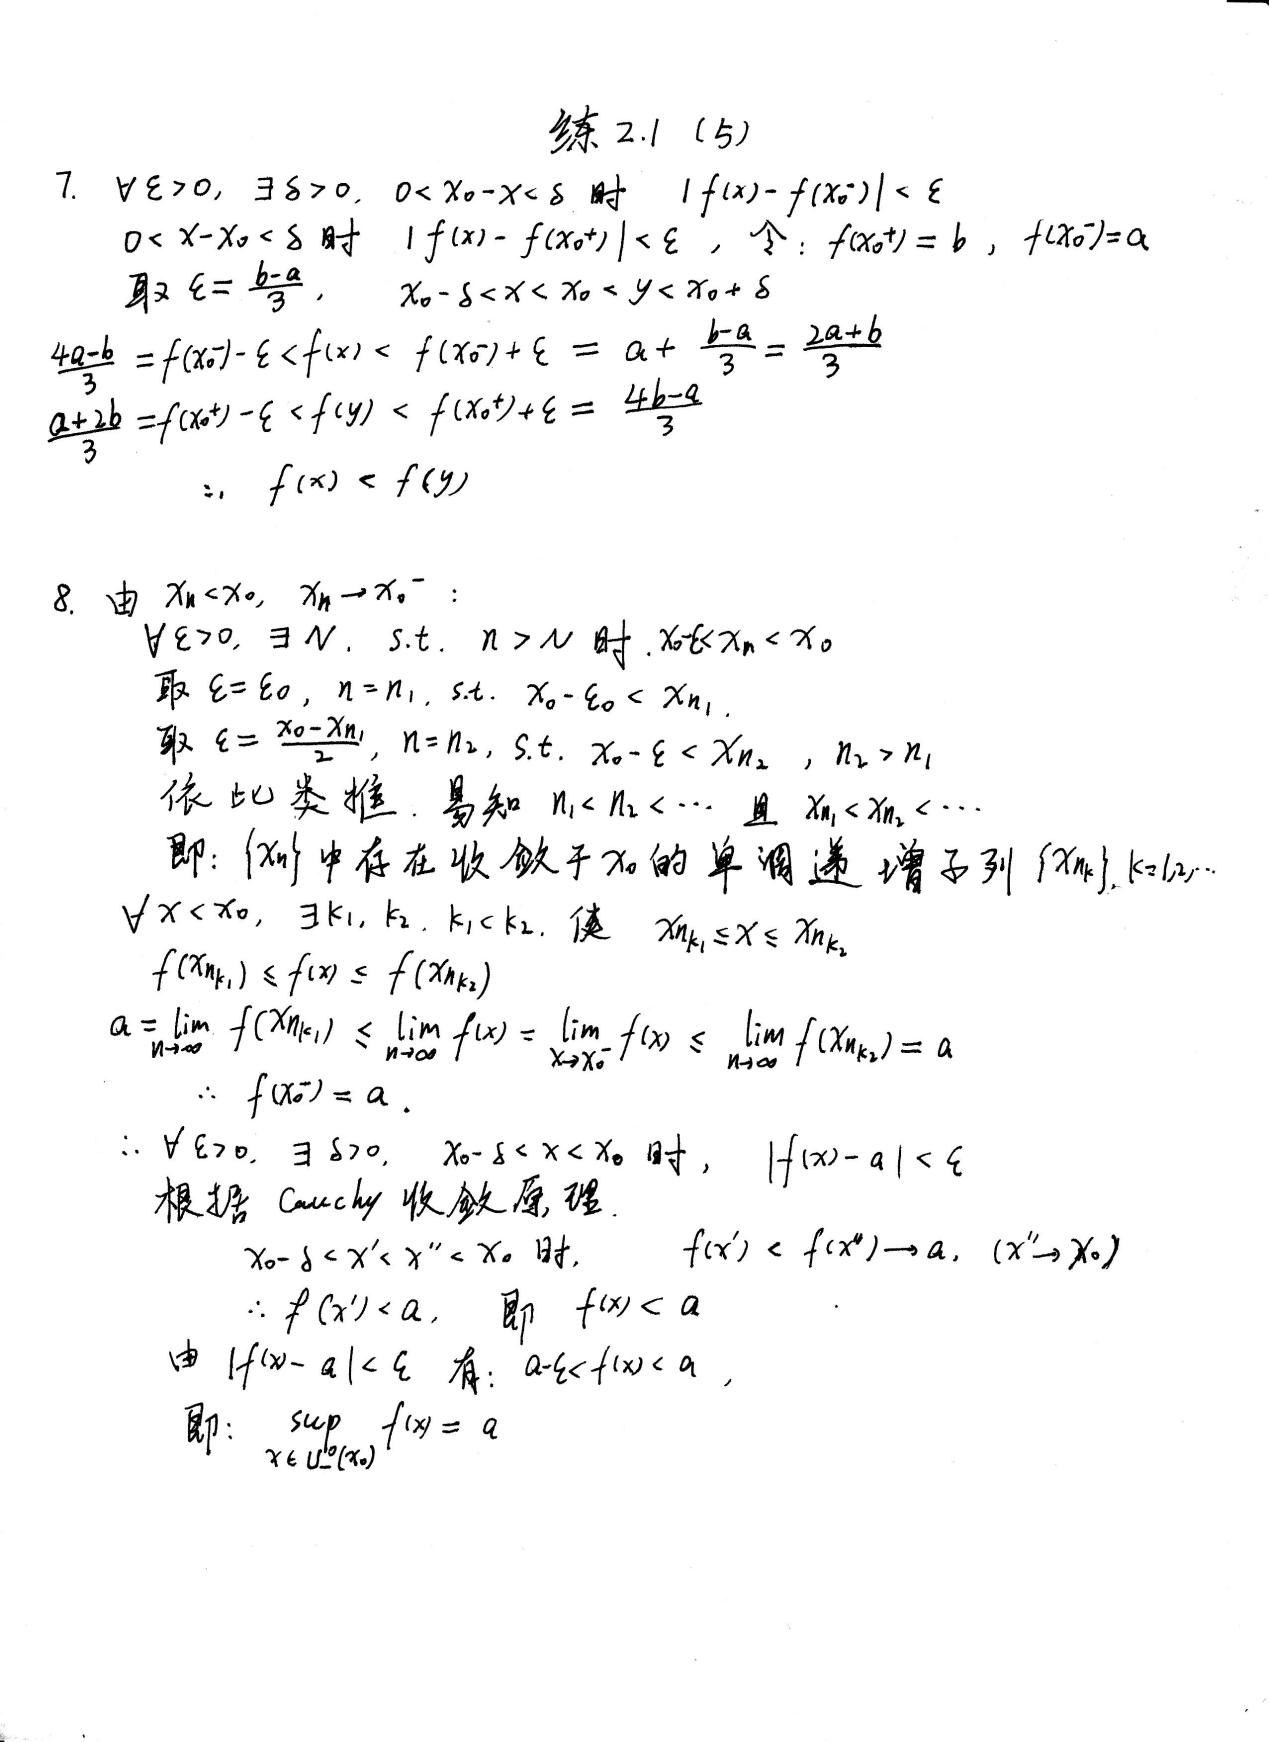 练 2.1 (5)
7. ∀ε>0, ∃δ>0, 0<x₀-x<δ 时 |f(x)-f(x₀⁻)|<ε
0<x-x₀<δ 时 |f(x)-f(x₀⁺)|<ε, 令: f(x₀⁺)=b, f(x₀⁻)=a
取 ε=(b-a)/3, x₀-δ<x<x₀<y<x₀+δ
(4a-b)/3=f(x₀⁻)-ε<f(x)<f(x₀⁻)+ε=a+(b-a)/3=(2a+b)/3
(a+2b)/3=f(x₀⁺)-ε<f(y)<f(x₀⁺)+ε=(4b-a)/3
∴ f(x)<f(y)
8. 由 xₙ<x₀, xₙ→x₀⁻:
∀ε>0, ∃N, s.t. n>N 时, x₀-ε<xₙ<x₀
取 ε=ε₀, n=n₁, s.t. x₀-ε₀<x_{n₁}.
取 ε=(x₀-x_{n₁})/2, n=n₂, s.t. x₀-ε<x_{n₂}, n₂>n₁
依此类推, 易知 n₁<n₂<⋯ 且 x_{n₁}<x_{n₂}<⋯
即: {xₙ}中存在收敛于x₀的单调递增子列{x_{n_k}}, k=1,2,⋯
∀x<x₀, ∃k₁, k₂, k₁<k₂, 使 x_{n_{k₁}}≤x≤x_{n_{k₂}}
f(x_{n_{k₁}})≤f(x)≤f(x_{n_{k₂}})
a=lim_{n→∞} f(x_{n_{k₁}})≤lim_{n→∞} f(x)=lim_{x→x₀⁻} f(x)≤lim_{n→∞} f(x_{n_{k₂}})=a
∴ f(x₀⁻)=a.
∴ ∀ε>0, ∃δ>0, x₀-δ<x<x₀ 时, |f(x)-a|<ε
根据 Cauchy 收敛原理.
x₀-δ<x'<x''<x₀ 时, f(x')<f(x'')→a, (x''→x₀)
∴ f(x')<a, 即 f(x)<a
由 |f(x)-a|<ε 有: a-ε<f(x)<a,
即: sup_{x∈U₋⁰(x₀)} f(x)=a